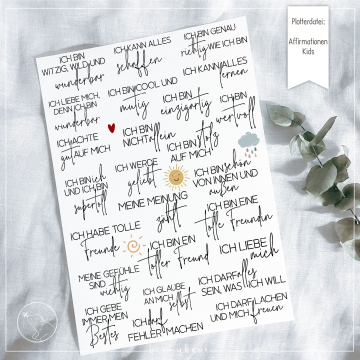 Plotterdatei:
Affirmationen
Kids
ICH BIN
WITZIG, WILD UND
wunderbar
ICH KANN ALLES
schaffen
ICH BIN GENAU
richtig WIE ICH BIN
ICH LIEBE MICH,
DENN ICH BIN
wunderbar
ICH BIN COOL UND
mutig
ICH KANN ALLES
lernen
ICH BIN
einzigartig
ICH BIN
wertvoll
ICH ACHTE
gut AUF MICH
ICH BIN
NICHT allein
ICH BIN stolz
AUF MICH
ICH BIN ich
UND ICH BIN
supertoll
ICH WERDE
geliebt
ICH BIN schön
VON INNEN UND
außen
MEINE MEINUNG
zählt
ICH BIN EINE
tolle Freundin
ICH HABE TOLLE
Freunde
ICH BIN EIN
toller Freund
ICH LIEBE
mich
MEINE GEFÜHLE
SIND wichtig
ICH GLAUBE
AN MICH selbst
ICH DARF alles
SEIN, WAS ICH WILL
ICH GEBE
IMMER MEIN
Bestes
ICH darf
FEHLER MACHEN
ICH DARF LACHEN
UND MICH freuen